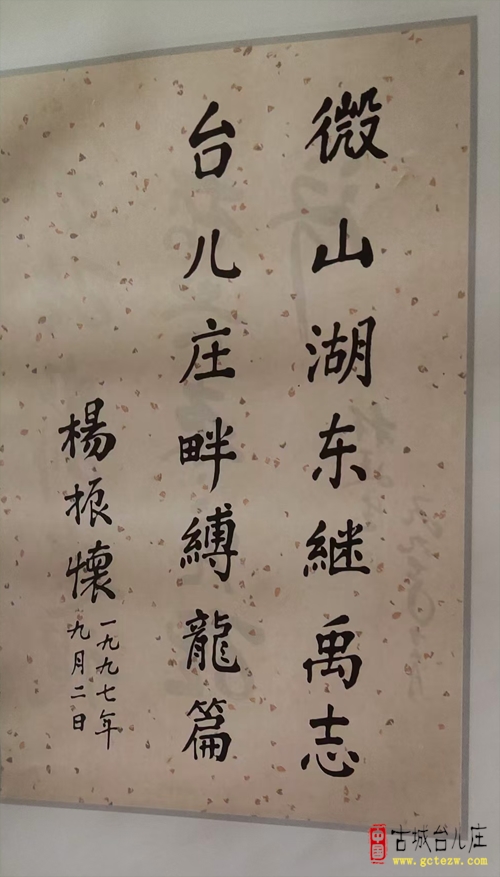 微山湖东继禹志
台儿庄畔缚龍篇
楊振懷
一九九七年
九月二日
中国
古城台儿庄
www.gctezw.com